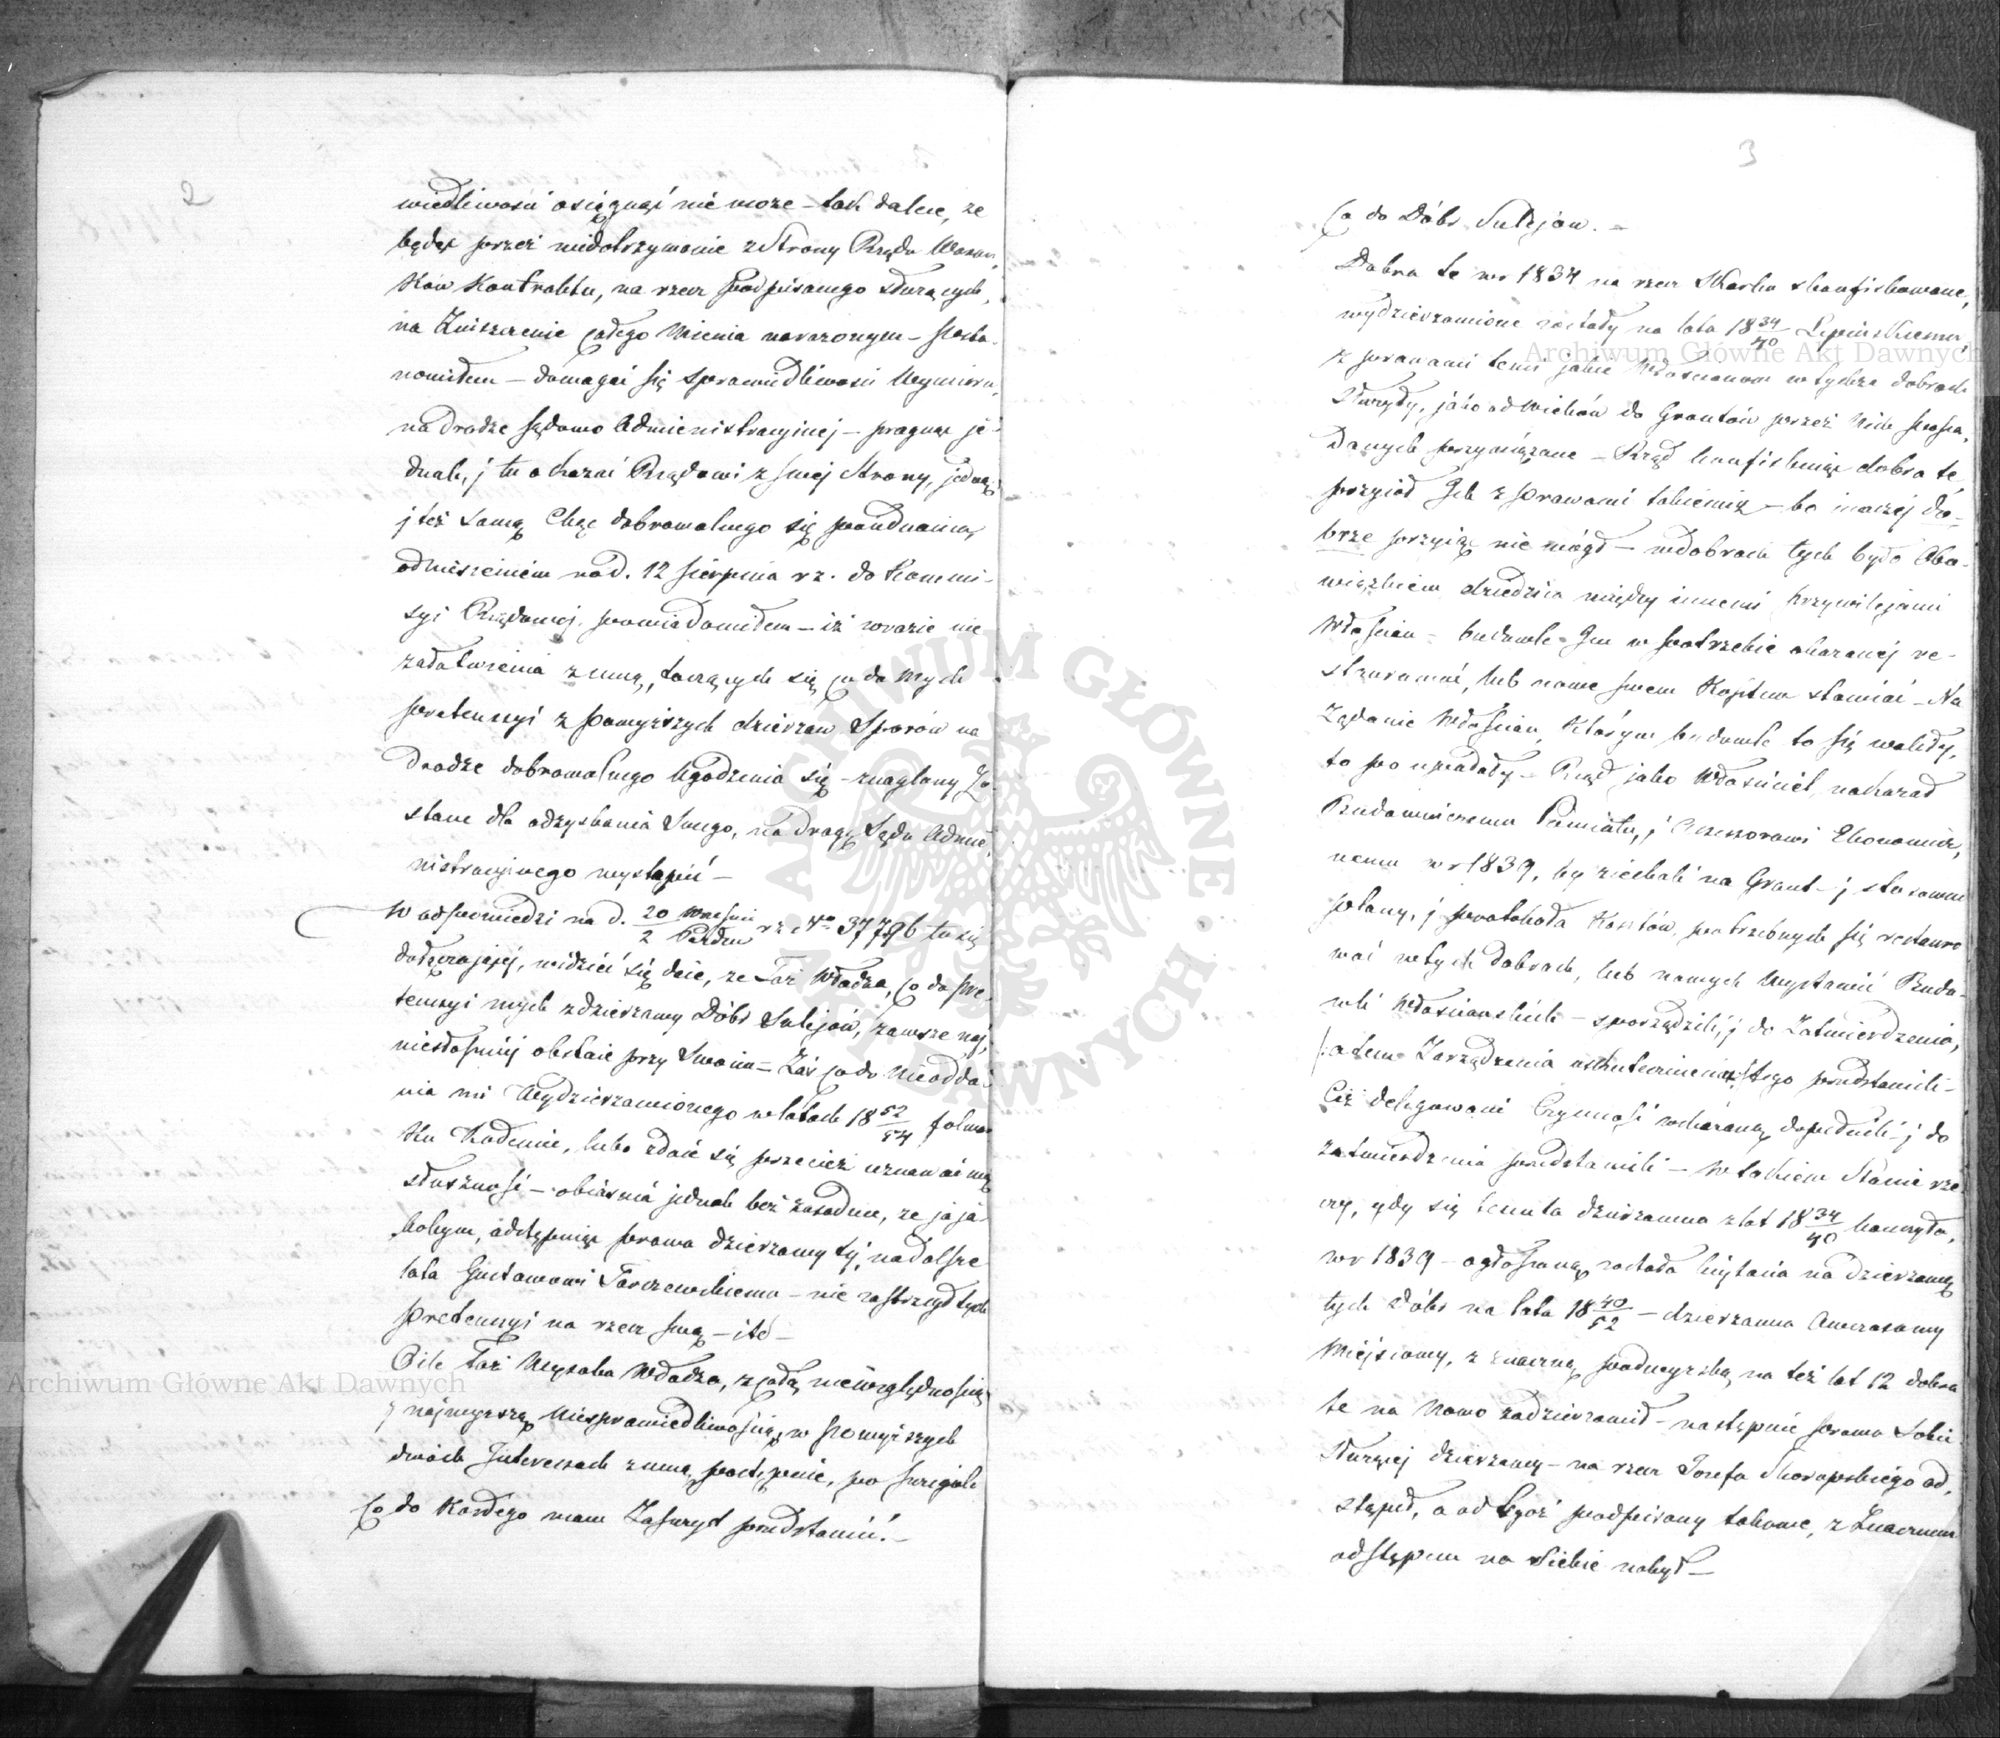 2
wiedliwości osiągnąć nie może – tak dalece, że
będąc przez niedotrzymanie z Strony Rządu Warun,
ków Kontraktu, na rzecz podpisanego służących,
na Zniszczenie całego Mienia narażonym – posta,
nowiłem – domagać się sprawiedliwości Wymiaru,
na drodze sądowo Administracyjnej – pragnąc je-
dnak, j tu okazać Rządowi z swej Strony, jedną
j też samą Chęć dobrowolnego się pojednania,
odniesieniem na d. 12 Sierpnia rz. do Kommi-
syi Rządowej, powiadomiłem – iż w razie nie
załatwienia zemną, toczących się co do mych
pretensyi z powyższych dzierżaw Sporów na
Drodze dobrowolnego Ugodzenia się – znaglony Zo-
stanę dla odzyskania Swego, na drogę Sądu Admi,
nistracyjnego wystąpić –
W odpowiedzi na d. 20 Września / 2 Paźdz rz No 37796 tu się
dołączającej, widzieć się daje, że Taż Władza, co do pre-
tensyi mych z dzierżawy Dóbr Sulejów, zawsze naj,
niesłuszniej obstaje przy Swoim – Zaś co do Nieodda-
nia mi Wydzierżawionego w latach 18 52/54 folwar
ku Kodenie, lubo zdaie się przecież uznawać mą
słuszność – obiaśnia jednak bez zasadnie, że ja ja-
kobym, odstępuiąc prawa dzierżawy tej, na dalsze
lata Gustawowi Tarczewskiemu – nie zastrzegł tych
pretensyi na rzecz swą – itd –
O ile Taż Wysoka Władza, z całą niewzględnością
j najwyższą Niesprawiedliwością, w powyższych
dwóch Interesach zemną postępuie, po szczególe
co do Każdego mam Zaszczyt przedstawić! –
3
Co do Dóbr Sulejów. –
Dobra te w r 1834 na rzecz Skarbu skonfiskowane,
wydzierżawione zostały na lata 18 34/40 Lipińskiemu,
z prawami temi jakie Włościanom w tychże dobrach
Służyły, jako od Wieków do Gruntów przez Nich posia,
danych przywiązane – Rząd konfiskując dobra te
przyiął Je z prawami takiemiż – bo inaczej do-
brze przyiąć nie mógł – w dobrach tych było Obo-
wiązkiem dziedzica między innemi przywilejami
Włościan – budowle Ich w potrzebie okazanej re-
staurować, lub nowe swem Kosztem stawiać – Na
Żądanie Włościan, Którym budowle to się waliły,
to po upadały – Rząd jako Właściciel, nakazał
Budowniczemu Powiatu, j Assessorowi Ekonomicz,
nemu w r 1839, by ziechali na Grunt – j stosowne
plany, j protokoła Kosztów, potrzebnych się restauro
wać w tych dobrach, lub nowych Wystawić Budo-
wli Włościańskich – sporządzili, j do Zatwierdzenia,
celem Zarządzenia uskutecznienia tego przedstawili –
Ciż delegowani Czynność wskazaną dopełnili – j do
zatwierdzenia przedstawili – W takiem Stanie rze
czy, gdy się tenuta dzierżawna z lat 18 34/40 kończyła,
w r 1839 – ogłoszoną została licytacia na dzierżawę
tych Dóbr na lata 18 40/52 – dzierżawca Ówczasowy
Miejscowy, z znaczną podwyżką, na też lat 12 dobra
te na Nowo zadzierżawił – następnie prawo Sobie
Służącej dzierżawy – na rzecz Józefa Skorupskiego od,
stąpił, a od Tegoż podpisany takowe, z Znacznem
odstępnem na Siebie nabył –
ARCHIWUM GŁÓWNE AKT DAWNYCH
Archiwum Główne Akt Dawnych
Archiwum Główne Akt Dawnych